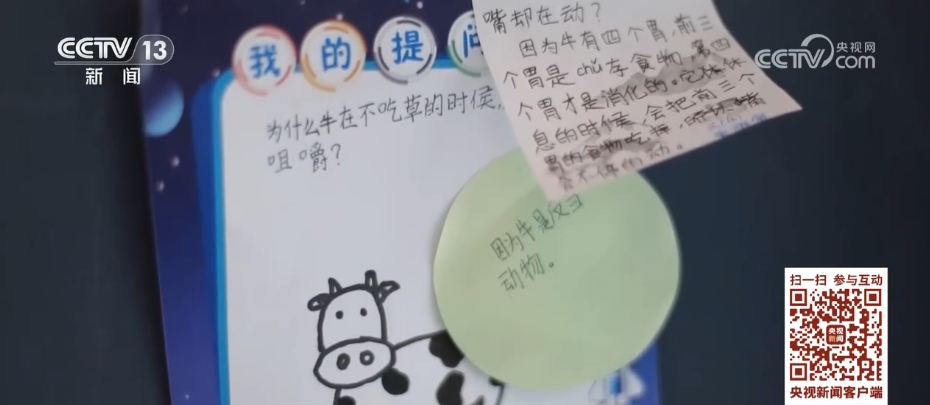 CCTV 13
新闻
央视网
CCTV.com
我的提问
为什么牛在不吃草的时候,
咀嚼?
嘴却在动?
因为牛有四个胃,前三
个胃是chǔ存食物,第四
个胃才是消化的。它休
息的时候,会把前三个
胃的食物吃掉,
会不停的动。
因为牛是反刍
动物。
扫一扫 参与互动
央视
新闻
央视新闻客户端